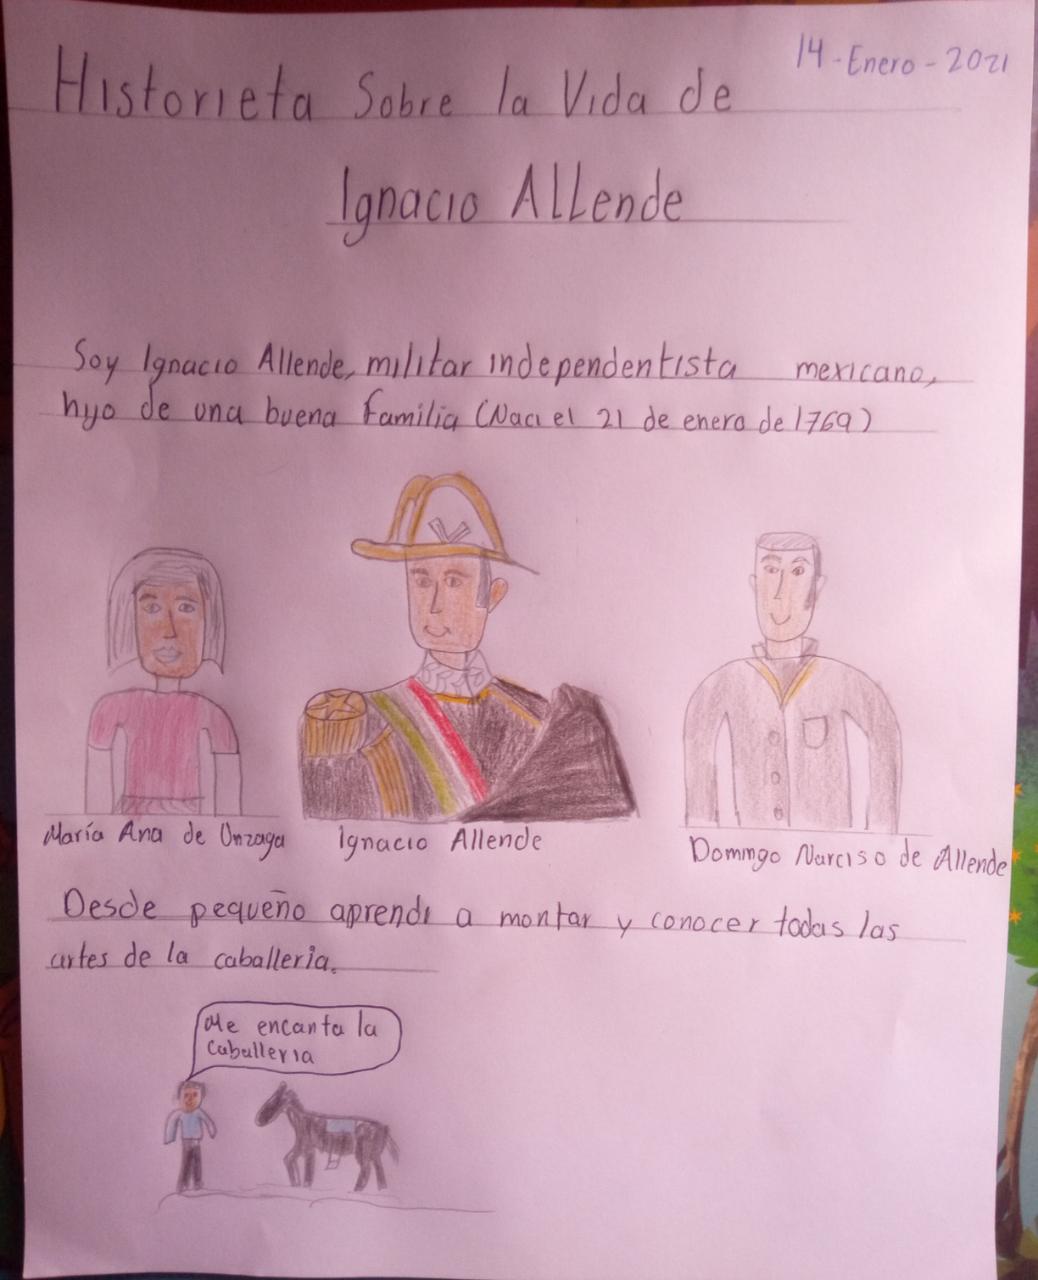 14-Enero-2021
Historieta Sobre la Vida de
Ignacio Allende
Soy Ignacio Allende, militar independentista mexicano,
hijo de una buena familia (Naci el 21 de enero de 1769)
María Ana de Unzaga
Ignacio Allende
Domingo Narciso de Allende
Desde pequeño aprendi a montar y conocer todas las
artes de la caballeria.
Me encanta la
caballeria